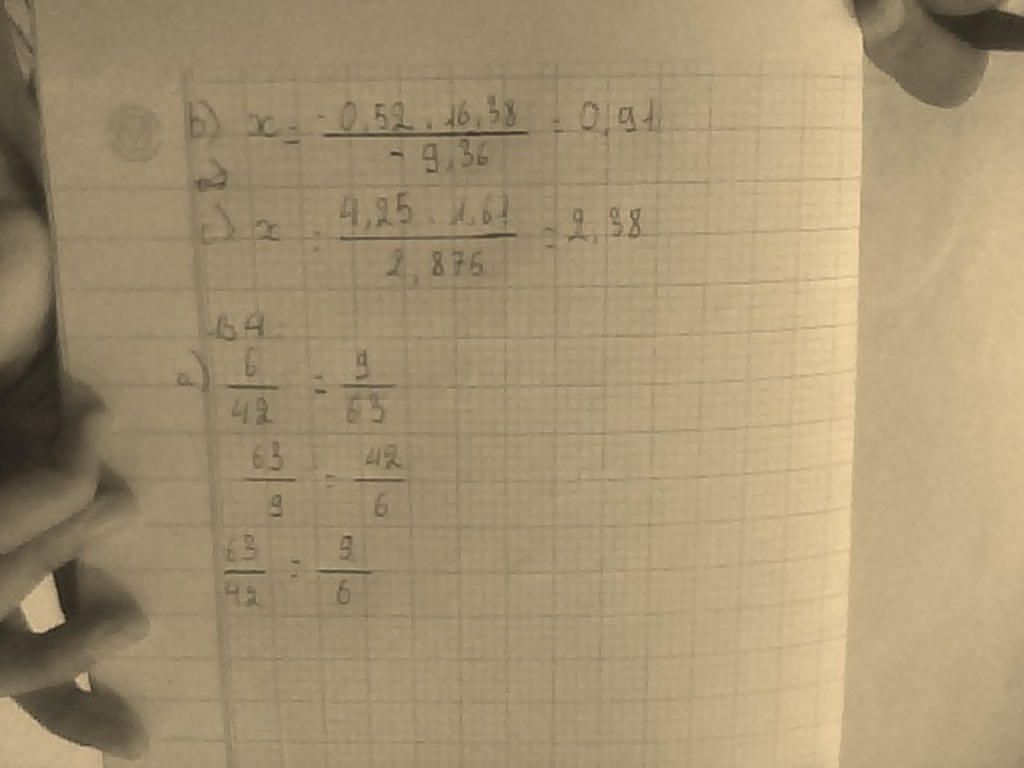 b) x = -0,52 . 16,38 / -9,36 = 0,91
c) x = 4,25 . 1,61 / 2,875 = 2,38
B4.
a) 6/42 = 9/63
63/9 = 42/6
63/42 = 9/6